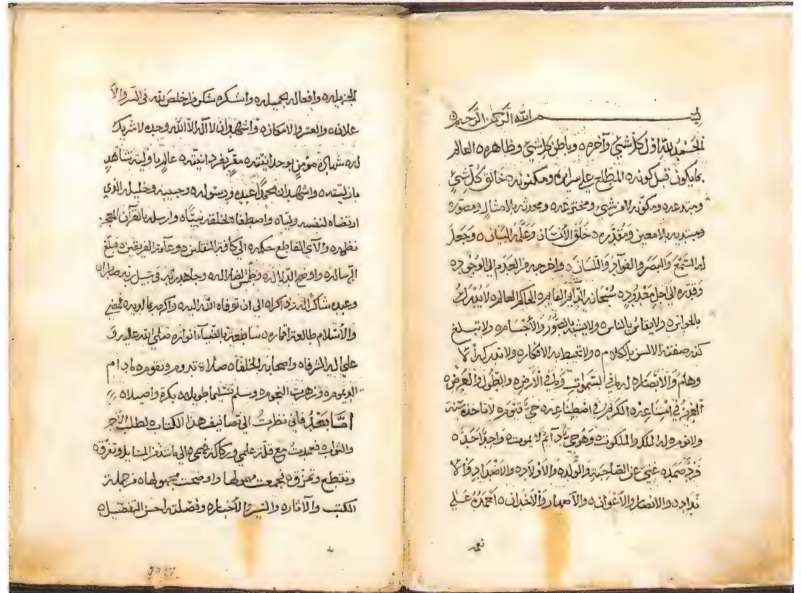 بسم الله الرحمن الرحيم
الحمد لله اول كل شيء وآخره وباطن كل شيء وظاهره العالم
بما يكون قبل كونه المطلع على سرايره ومكنونه خالق كل شيء
ومبتدعه ومكونه ومخترعه ومحدثه بلا مثال ومصوره
ومبتديه بلا معين ومقدره خلق الانسان وعلمه البيان وجعل
له السمع والبصر والفواد واللسان واخرجه من العدم الى الوجود
وقدره الى اجل محدود سبحانه القاهر الحاكم العالم لا يدرك
بالحواس ولا يقاس بالناس ولا يشبه بالصور والاجسام ولا تبلغ
كنه صفته الالسن بالكلام ولا تحيط به الافكار ولا تدركه الا
وهام والابصار له ما في السموت وما في الارض والطول والعرض
العزيز في امتناعه الكريم في اصطناعه حي قيوم لا تاخذه سنة
ولا نوم له الملك والملكوت وهو حي دايم لا يموت واحد احد
فرد صمد غني عن الصاحبة والولد والاولاد والاضداد والا
نداد والانصار والاعوان والاصهار والاخدان احمده على
نعمه
الجزيلة وافعاله الجميلة واشكره شكر من اخلص لله في السر والا
علانه والعسر والامكان واشهد ان لا اله الا الله وحده لا شريك
له شهادة مؤمن بوحدانيته مقر بفردانيته عالم باوليته شاهد
بازليته واشهد ان محمدا عبده ورسوله وحبيبه وخليله الذي
ارتضاه لنفسه ونباه واصطفاه لخلقه نبياه وارسله بالقرآن المعجز
نظمه والآي القاطع حكمه الى كافة الثقلين وعامة الفريقين فبلغ
الرسالة واوضح الدلالة وجاهد
وعبده شاكرا لله ذاكرا الى ان توفاه الله اليه واكرمه بما لديه
والاسلام طالعة اقماره ساطعة بالضيآء انواره صلى الله عليه و
على اله الشرفاء واصحابه الخلفاء صلاة تدوم وتقوم ما دام
وزهرت النجوم وسلم تسليما طويلا بكرة واصيلا
اما بعد فاني نظرت الى تصانيف هذا الكتاب لطلب الاجر
والثواب فعمدت مع قلة علمي وركاكة فهمي الى ما تبدد من المسايل وتفرق
وتقطع وتمزق فجمعت واوضحت مجهولها من جملة
الكتب والآثار والسير والاخبار وفصلته احسن التفصيل